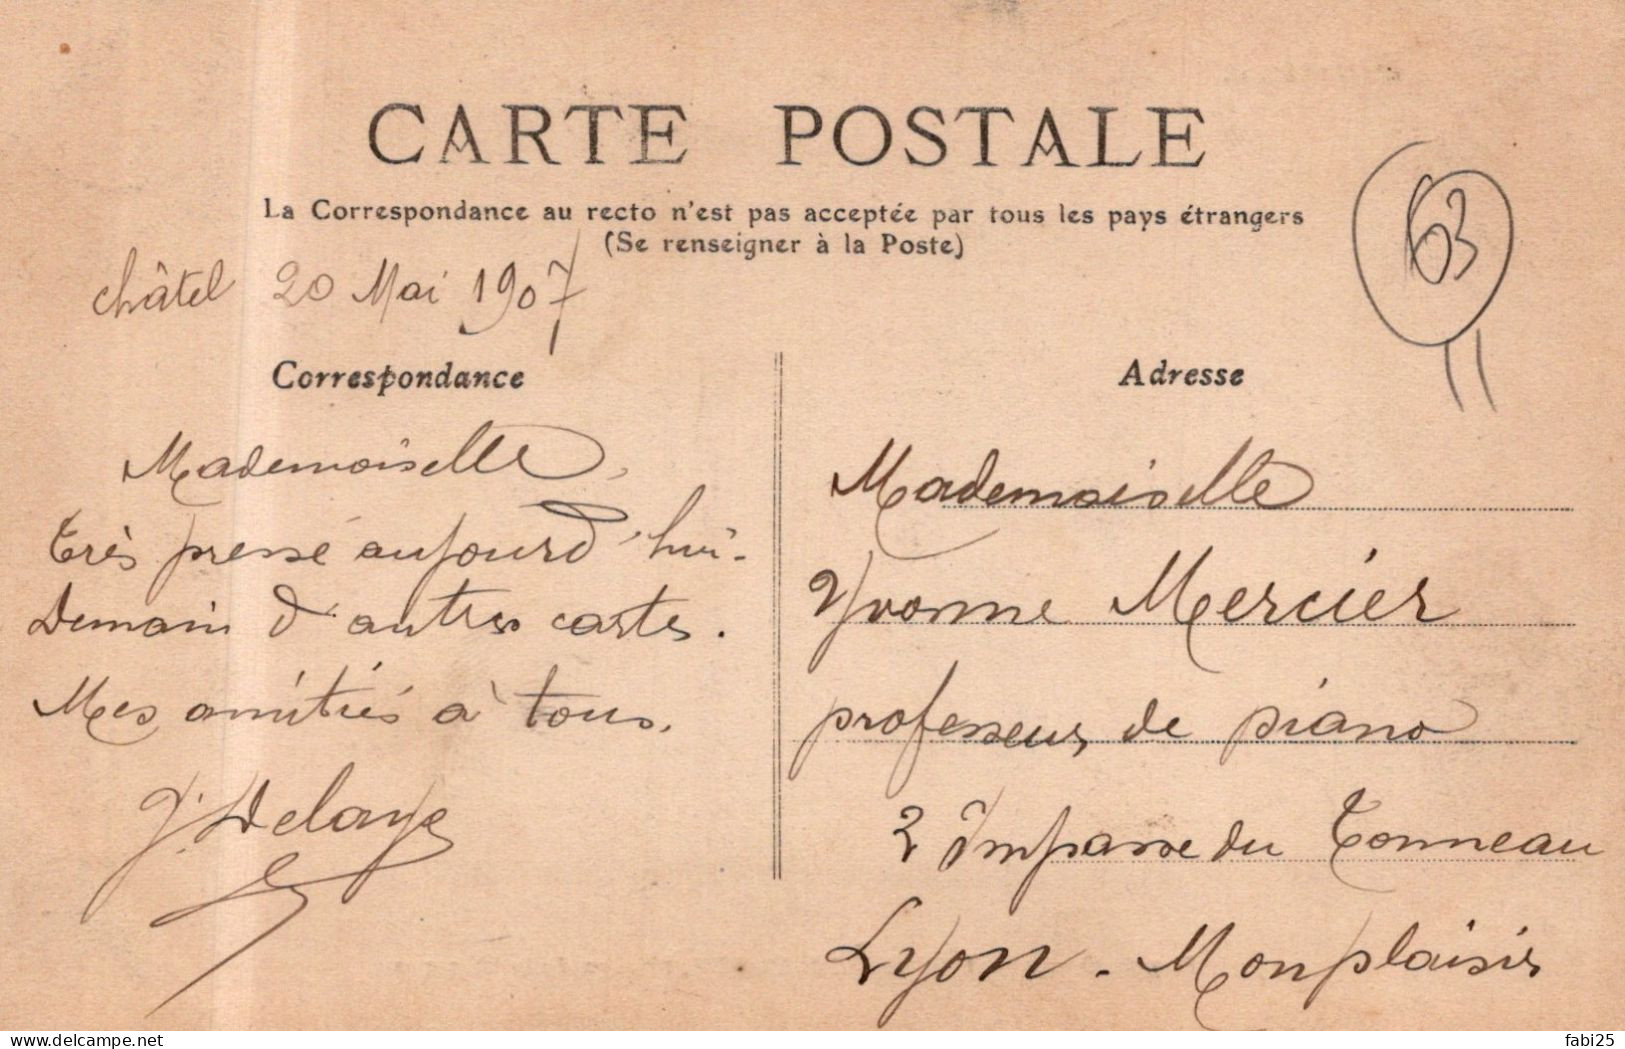 CARTE POSTALE
La Correspondance au recto n'est pas acceptée par tous les pays étrangers
(Se renseigner à la Poste)
63
châtel 20 Mai 1907
Correspondance
Mademoiselle,
très pressé aujourd'hui.
Demain d'autres cartes.
Mes amitiés à tous.
J. Delaye
Adresse
Mademoiselle
Yvonne Mercier
professeur de piano
2 Impasse du Tonneau
Lyon - Monplaisir
delcampe.net
fabi25